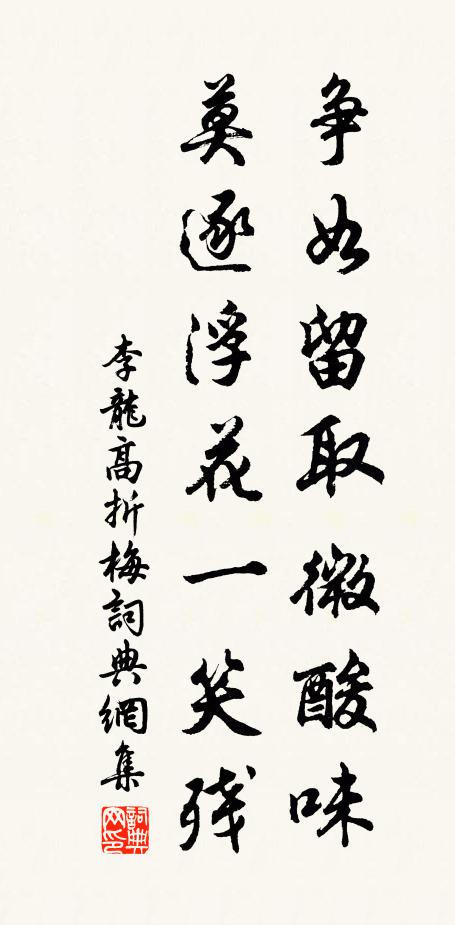 争如留取微酸味
莫逐浮花一笑残
李龍高折梅詞典網集
詞典网印